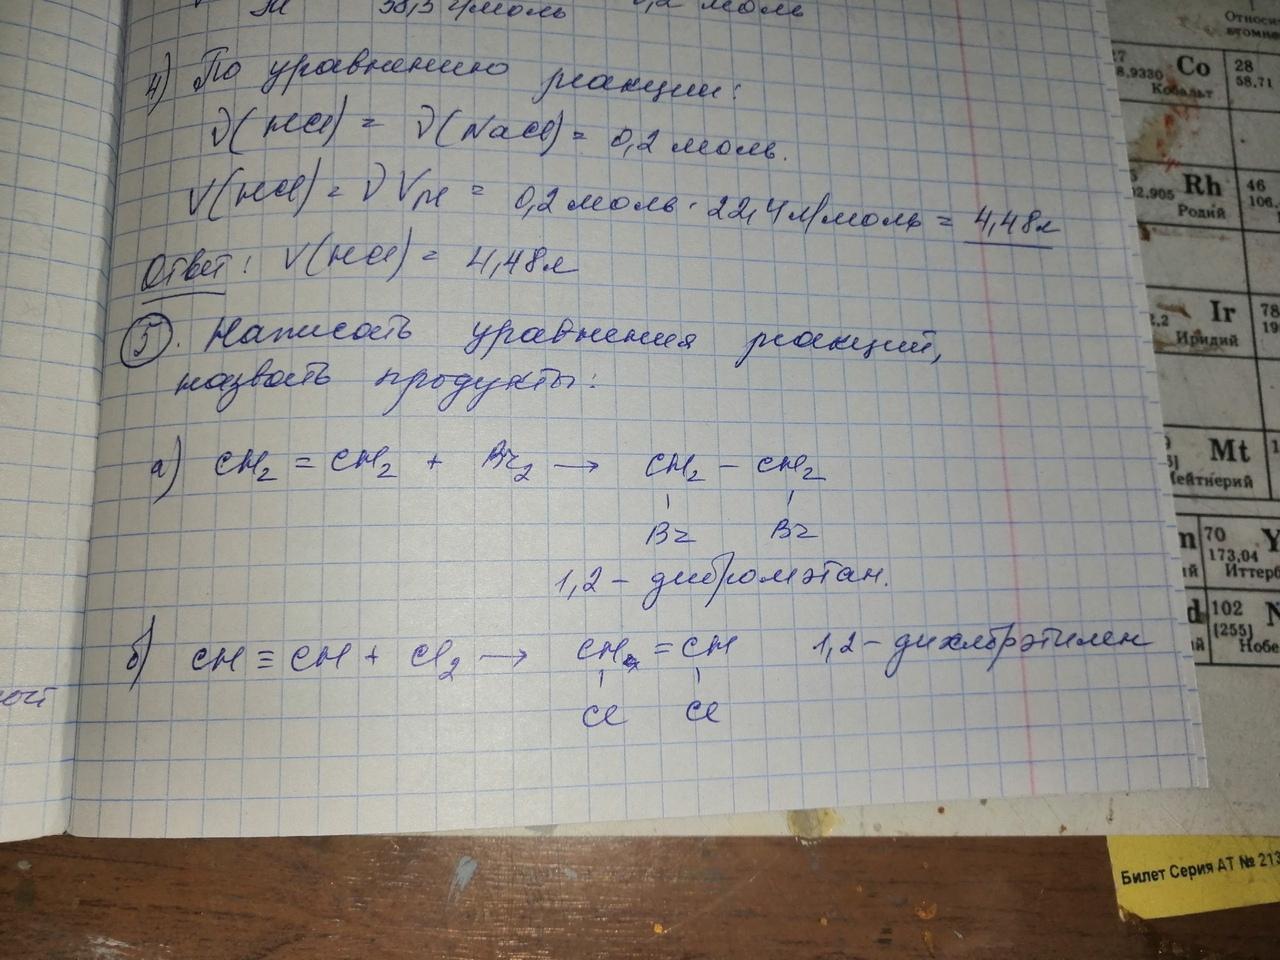 M 58,5 г/моль 0,2 моль
4) По уравнению реакции:
ν(HCl) = ν(NaCl) = 0,2 моль.
V(HCl) = ν Vm = 0,2 моль · 22,4 л/моль = 4,48 л
Ответ: V(HCl) = 4,48 л
5. Написать уравнения реакций,
назвать продукты:
а) CH2 = CH2 + Br2 → CH2 – CH2
Br Br
1,2 – дибромэтан.
б) CH ≡ CH + Cl2 → CH = CH 1,2 – дихлорэтилен
Cl Cl
Относи
атомна
27
8,9330 Co
Кобальт
28
58,71
102,905 Rh
Родий
46
106,
Ir
Иридий
78
19
Mt
Мейтнерий
70
173,04
Иттерб
102
[255]
Нобе
Билет Серия АТ № 213